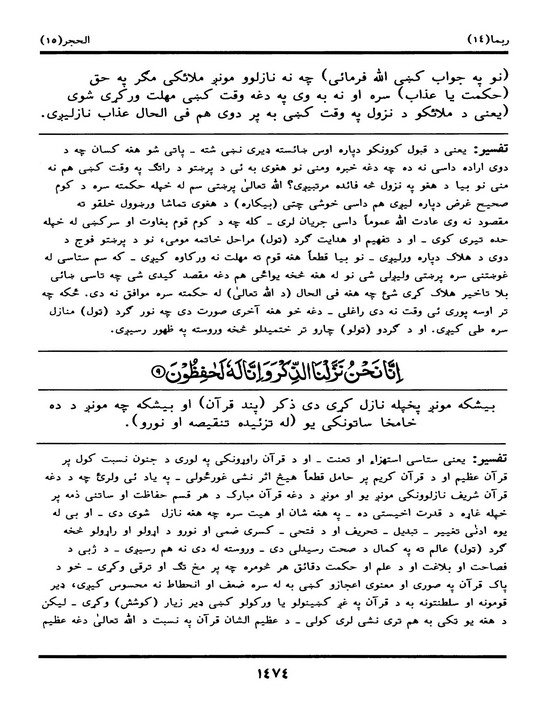 ربما(١٤)
الحجر(١٥)
(نو په جواب کښی الله فرمائی) چه نه نازلوو مونږ ملائکی مگر په حق
(حکمت یا عذاب) سره او نه به وی په دغه وقت کښی مهلت ورکړی شوی
(یعنی د ملائکو د نزول په وقت کښی به پر دوی هم فی الحال عذاب نازلیږی.
تفسیر: یعنی د قبول کوونکو دپاره اوس ښائسته ډیری نښی شته ــ پاتی شو هغه کسان چه د
دوی اراده داسی نه ده چه دغه خبره ومنی نو هغوی به ئی د پرښتو د راتگ په وقت کښی هم نه
منی نو بیا د هغو په نزول څه فائده مرتبیږی؟ الله تعالیٰ پرښتی سم له خپله حکمته سره د کوم
صحیح غرض دپاره لیږی هم داسی خوشی چتی (بیکاره) د هغوی تماشا ورښوول خلقو ته
مقصود نه وی عادت الله عموماً داسی جریان لری ــ کله چه د کوم قوم بغاوت او سرکښی له خپله
حده تیری کوی ــ او د تفهیم او هدایت گرد (ټول) مراحل خاتمه مومی، نو د پرښتو فوج د
دوی د هلاک دپاره ورلیږی ــ نو بیا قطعاً هغه قوم ته مهلت نه ورکاوه کیږی ــ که سم ستاسی له
غوښتنی سره پرښتی ولیږلی شی نو له هغه څخه یواځی هم دغه مقصد کیدی شی چه تاسی ښائی
بلا تاخیر هلاک کړی شئ چه هغه فی الحال (د الله تعالیٰ) له حکمته سره موافق نه دی. ځکه چه
تر اوسه پوری ئی وقت نه دی راغلی ــ دغه خو هغه آخری صورت دی چه نور گرد (ټول) منازل
سره طی کیږی. او د گردو (ټولو) چارو تر ختمیدلو څخه وروسته په ظهور رسیږی.
اِنَّا نَحْنُ نَزَّلْنَا الذِّكْرَ وَاِنَّا لَهٗ لَحٰفِظُوْنَ ۹
بیشکه مونږ پخپله نازل کړی دی ذکر (پند قرآن) او بیشکه چه مونږ د ده
خامخا ساتونکی یو (له تزئیده تنقیصه او نورو).
تفسیر: یعنی ستاسی استهزاء او تعنت ــ او د قرآن راوړونکی په لوری د جنون نسبت کول پر
قرآن عظیم او د قرآن کریم پر حامل قطعاً هیڅ اثر نشی غورځولی ــ په یاد ئی ولرئ چه د دغه
قرآن شریف نازلوونکی مونږ یو او مونږ د دغه قرآن مبارک د هر قسم حفاظت او ساتنی ذمه پر
خپله غاړه د قدرت اخیستی ده ــ په هغه شان او هیت سره چه هغه نازل شوی دی ــ او بی له
یوه ادنیٰ تغییر ــ تبدیل ــ تحریف او د فتحی ــ کسری ضمی او نورو د اړولو او راړولو څخه
گرد (ټول) عالم ته په کمال د صحت رسیدلی دی ــ وروسته له دی نه هم رسیږی ــ د ژبی د
فصاحت او بلاغت او د علم او حکمت دقائق هر څومره چه پر مخ تگ او ترقی وکړی ــ خو د
پاک قرآن په صوری او معنوی اعجازو کښی به له سره ضعف او انحطاط نه محسوس کیږی، ډیر
قومونه او سلطنتونه به د قرآن په غږ کښینولو یا ورکولو کښی ډیر زیار (کوشش) وکړی ــ لیکن
د هغه یو ټکی به هم تری نشی لری کولی ــ د عظیم الشان قرآن په نسبت د الله تعالیٰ دغه عظیم
١٤٧٤